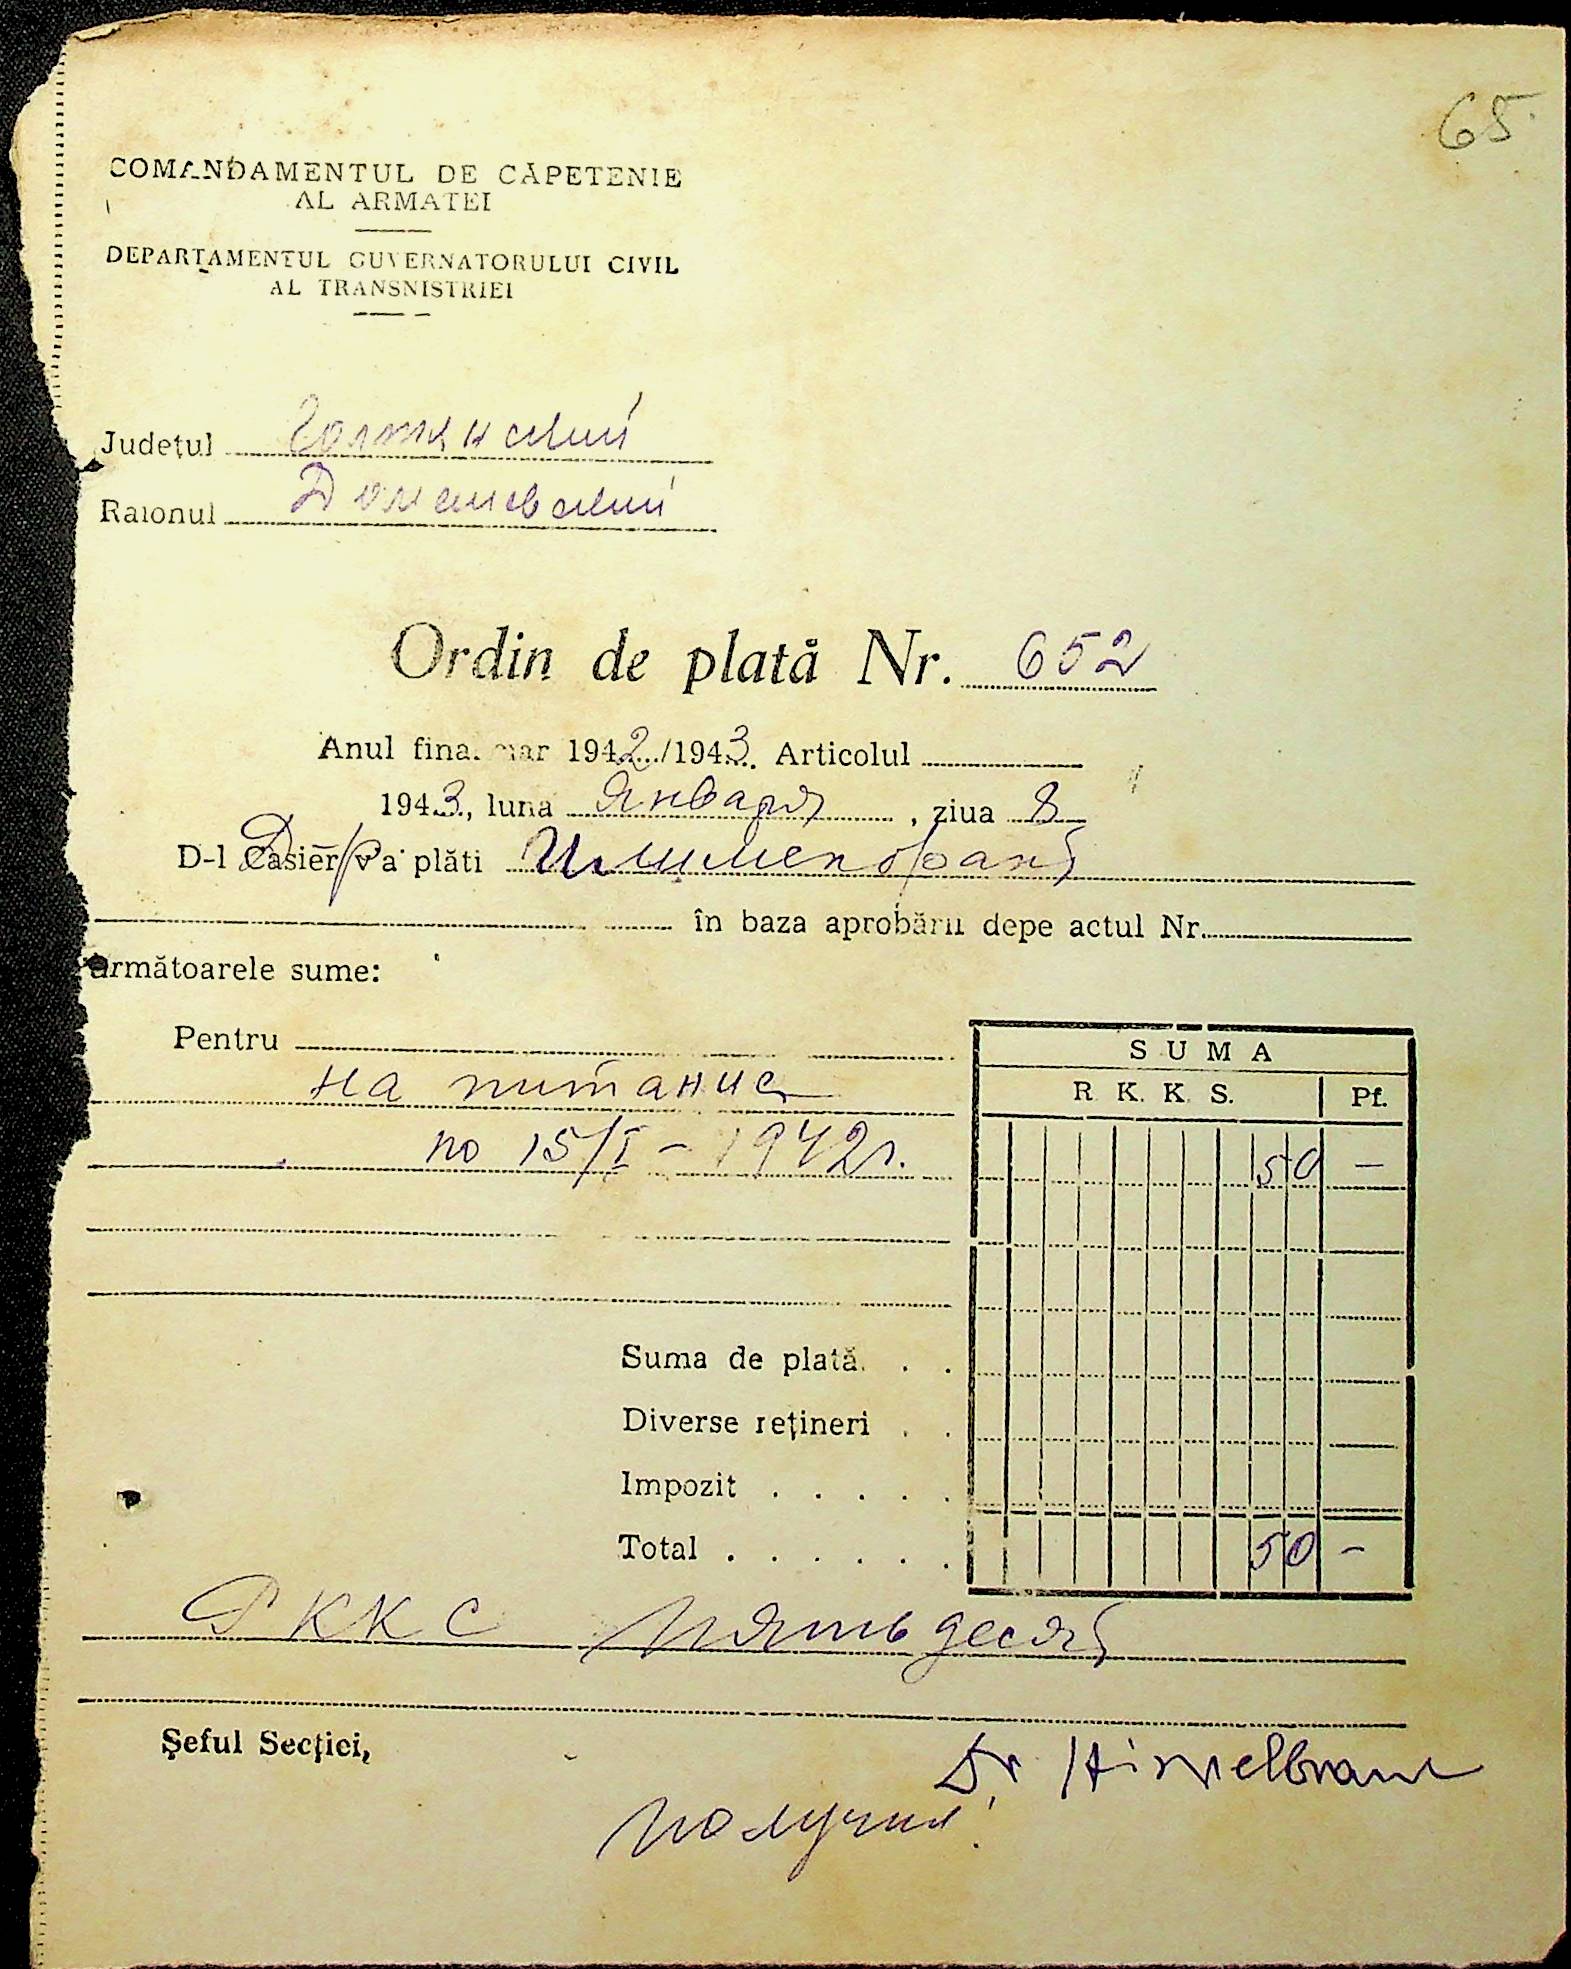 65
COMANDAMENTUL DE CĂPETENIE
AL ARMATEI
DEPARTAMENTUL GUVERNATORULUI CIVIL
AL TRANSNISTRIEI
Județul Голтянский
Raionul Доманевский
Ordin de plată Nr. 652
Anul financiar 1942/1943 Articolul
1943, luna Января, ziua 8
D-l Casier va plăti Д-р
în baza aprobării depe actul Nr.
următoarele sume:
Pentru
SUMA
R. K. K. S. Pf.
на питание
по 15/I - 1942г. 50 —
Suma de plată
Diverse rețineri
Impozit
Total 50 —
РККС Пятьдесят
Șeful Secției,
Dr.
Получил